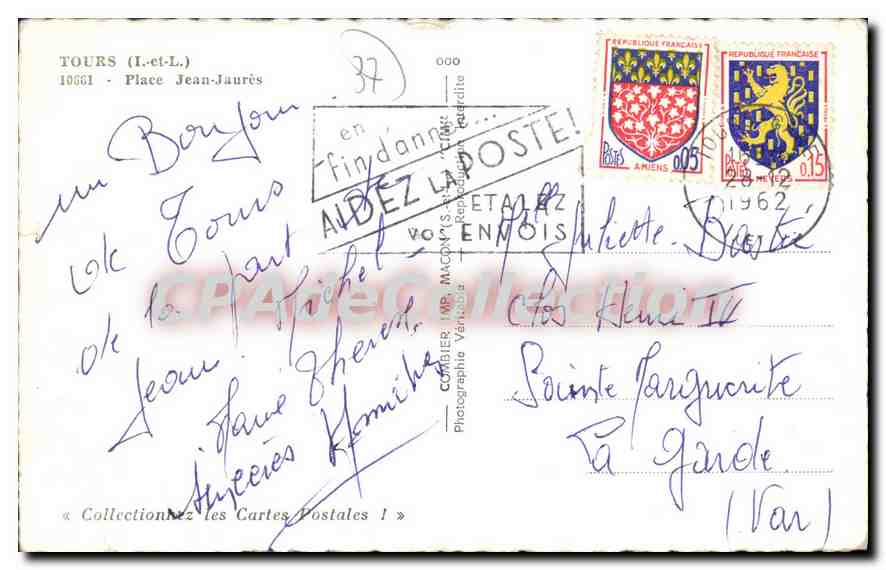 TOURS (I.-et-L.)
10661 - Place Jean-Jaurès
37
un Bonjour
de Tours
de la part de
Jean-Michel
Marie Thérèse
« Collectionnez les Cartes Postales ! »
000
COMBIER IMP. MACON (S.-et-L.) "CIM"
Photographie Véritable - Reproduction Interdite
en
fin d'année...
AIDEZ LA POSTE!
ETALEZ
VOS ENVOIS
REPUBLIQUE FRANÇAISE
POSTES 0,05
AMIENS
REPUBLIQUE FRANÇAISE
POSTES 0,15
NEVERS
28-12
1962
Mlle Juliette
Clos Henri IV
Sainte Marguerite
La Garde
(Var)
CPArteCollection